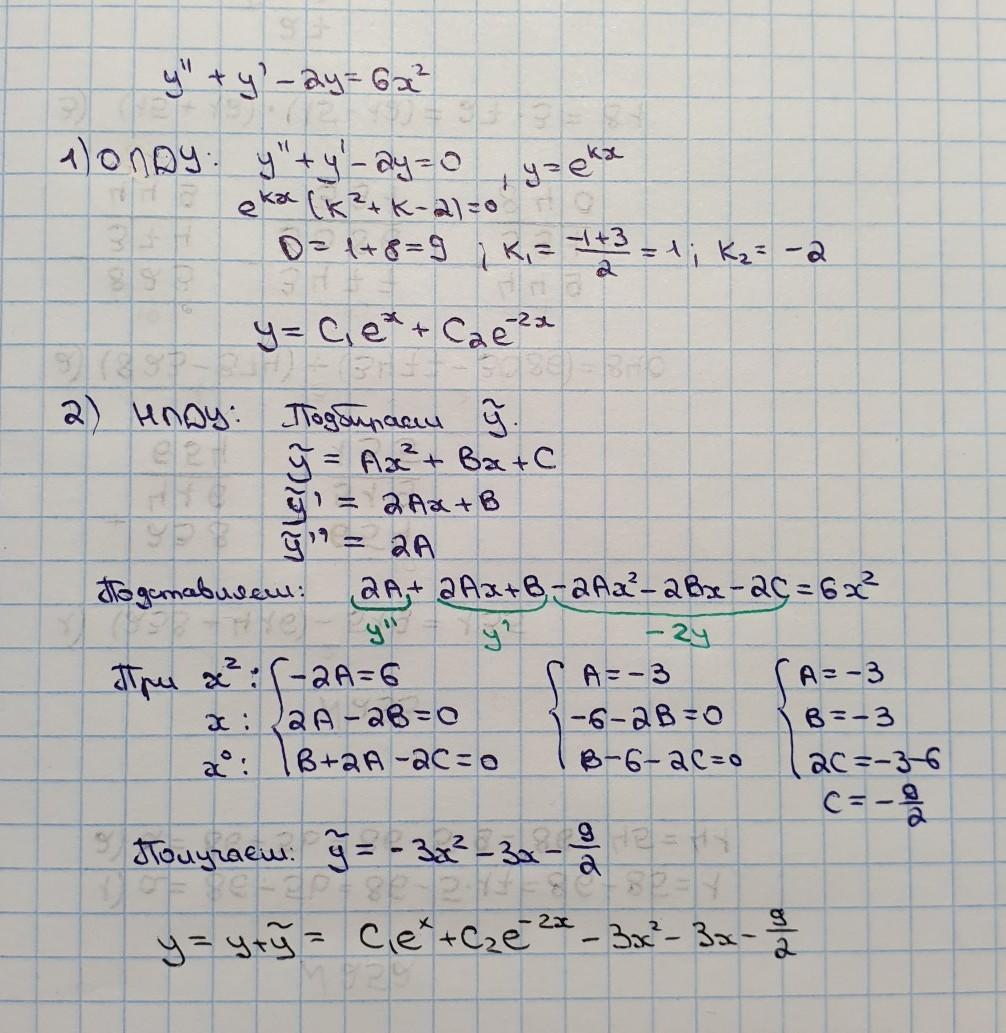 y'' + y' - 2y = 6x²
1) ОЛДУ: y'' + y' - 2y = 0 , y = e^{kx}
e^{kx} (k² + k - 2) = 0
D = 1 + 8 = 9 ; k₁ = \frac{-1+3}{2} = 1 ; k₂ = -2
y = C₁e^x + C₂e^{-2x}
2) НЛДУ: Подбираем ỹ.
ỹ = Ax² + Bx + C
ỹ' = 2Ax + B
ỹ'' = 2A
Подставляем: 2A + 2Ax + B - 2Ax² - 2Bx - 2C = 6x²
y'' y' -2y
При x²: { -2A = 6 { A = -3 { A = -3
x: 2A - 2B = 0 -6 - 2B = 0 B = -3
x⁰: B + 2A - 2C = 0 B - 6 - 2C = 0 2C = -3 - 6
C = -\frac{9}{2}
Получаем: ỹ = -3x² - 3x - \frac{9}{2}
y = y + ỹ = C₁e^x + C₂e^{-2x} - 3x² - 3x - \frac{9}{2}